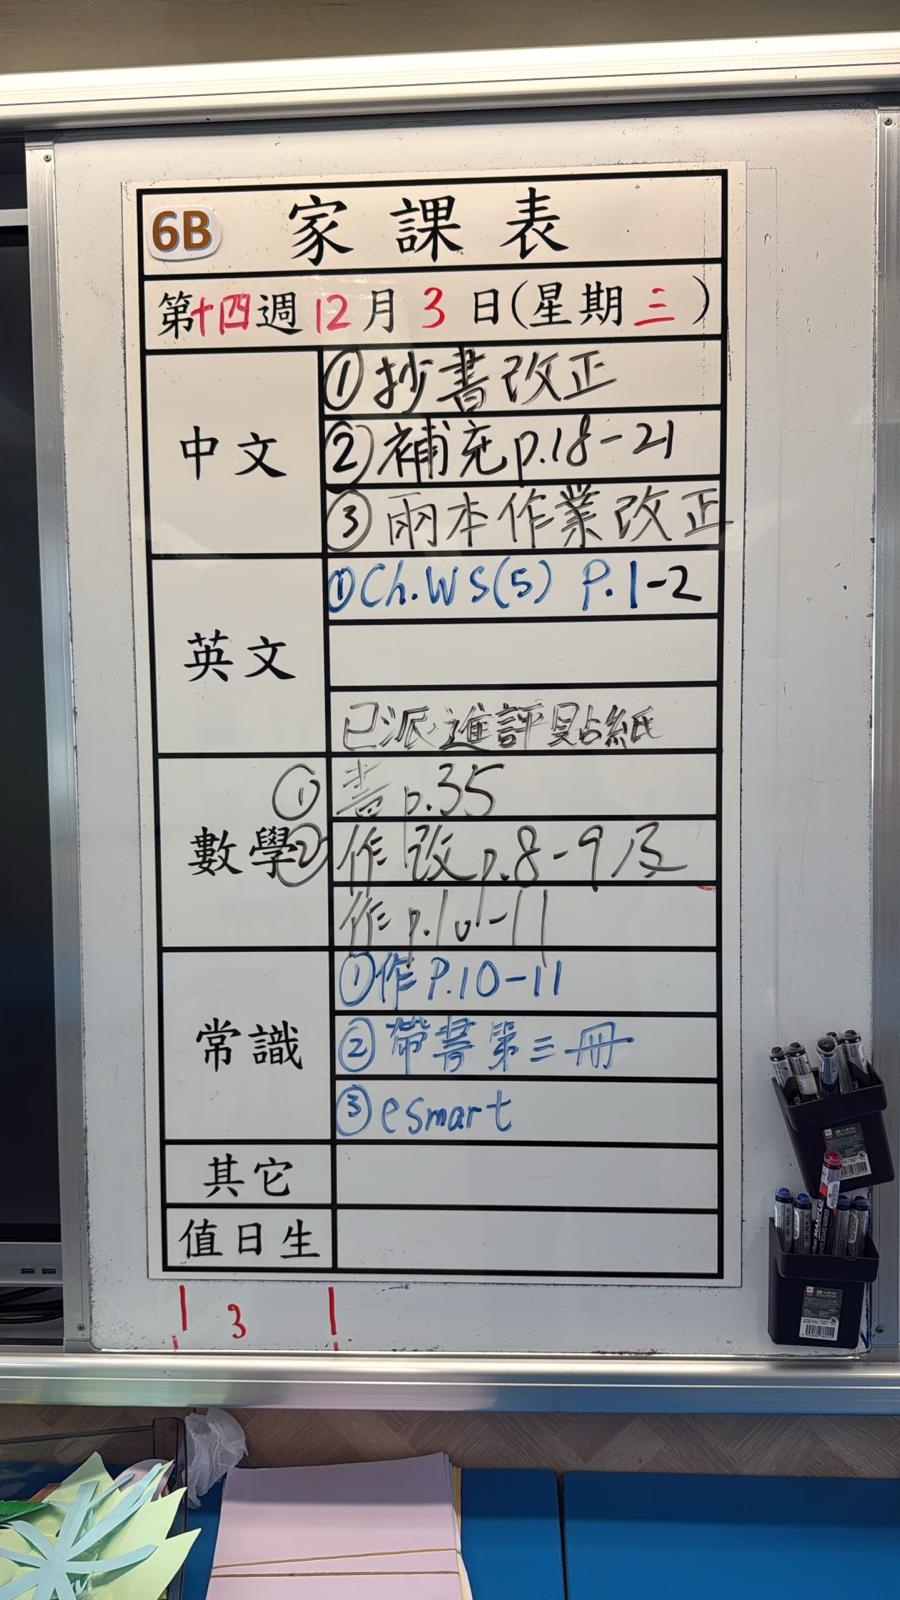 6B 家課表
第十四週 12月3日(星期三)
中文
①抄書改正
②補充p.18-21
③兩本作業改正
英文
①Ch.WS(5) P.1-2
已派進評貼紙
數學
①書p.35
②作改p.8-9及
作p.10-11
常識
①作P.10-11
②帶書第三冊
③esmart
其它
值日生
3